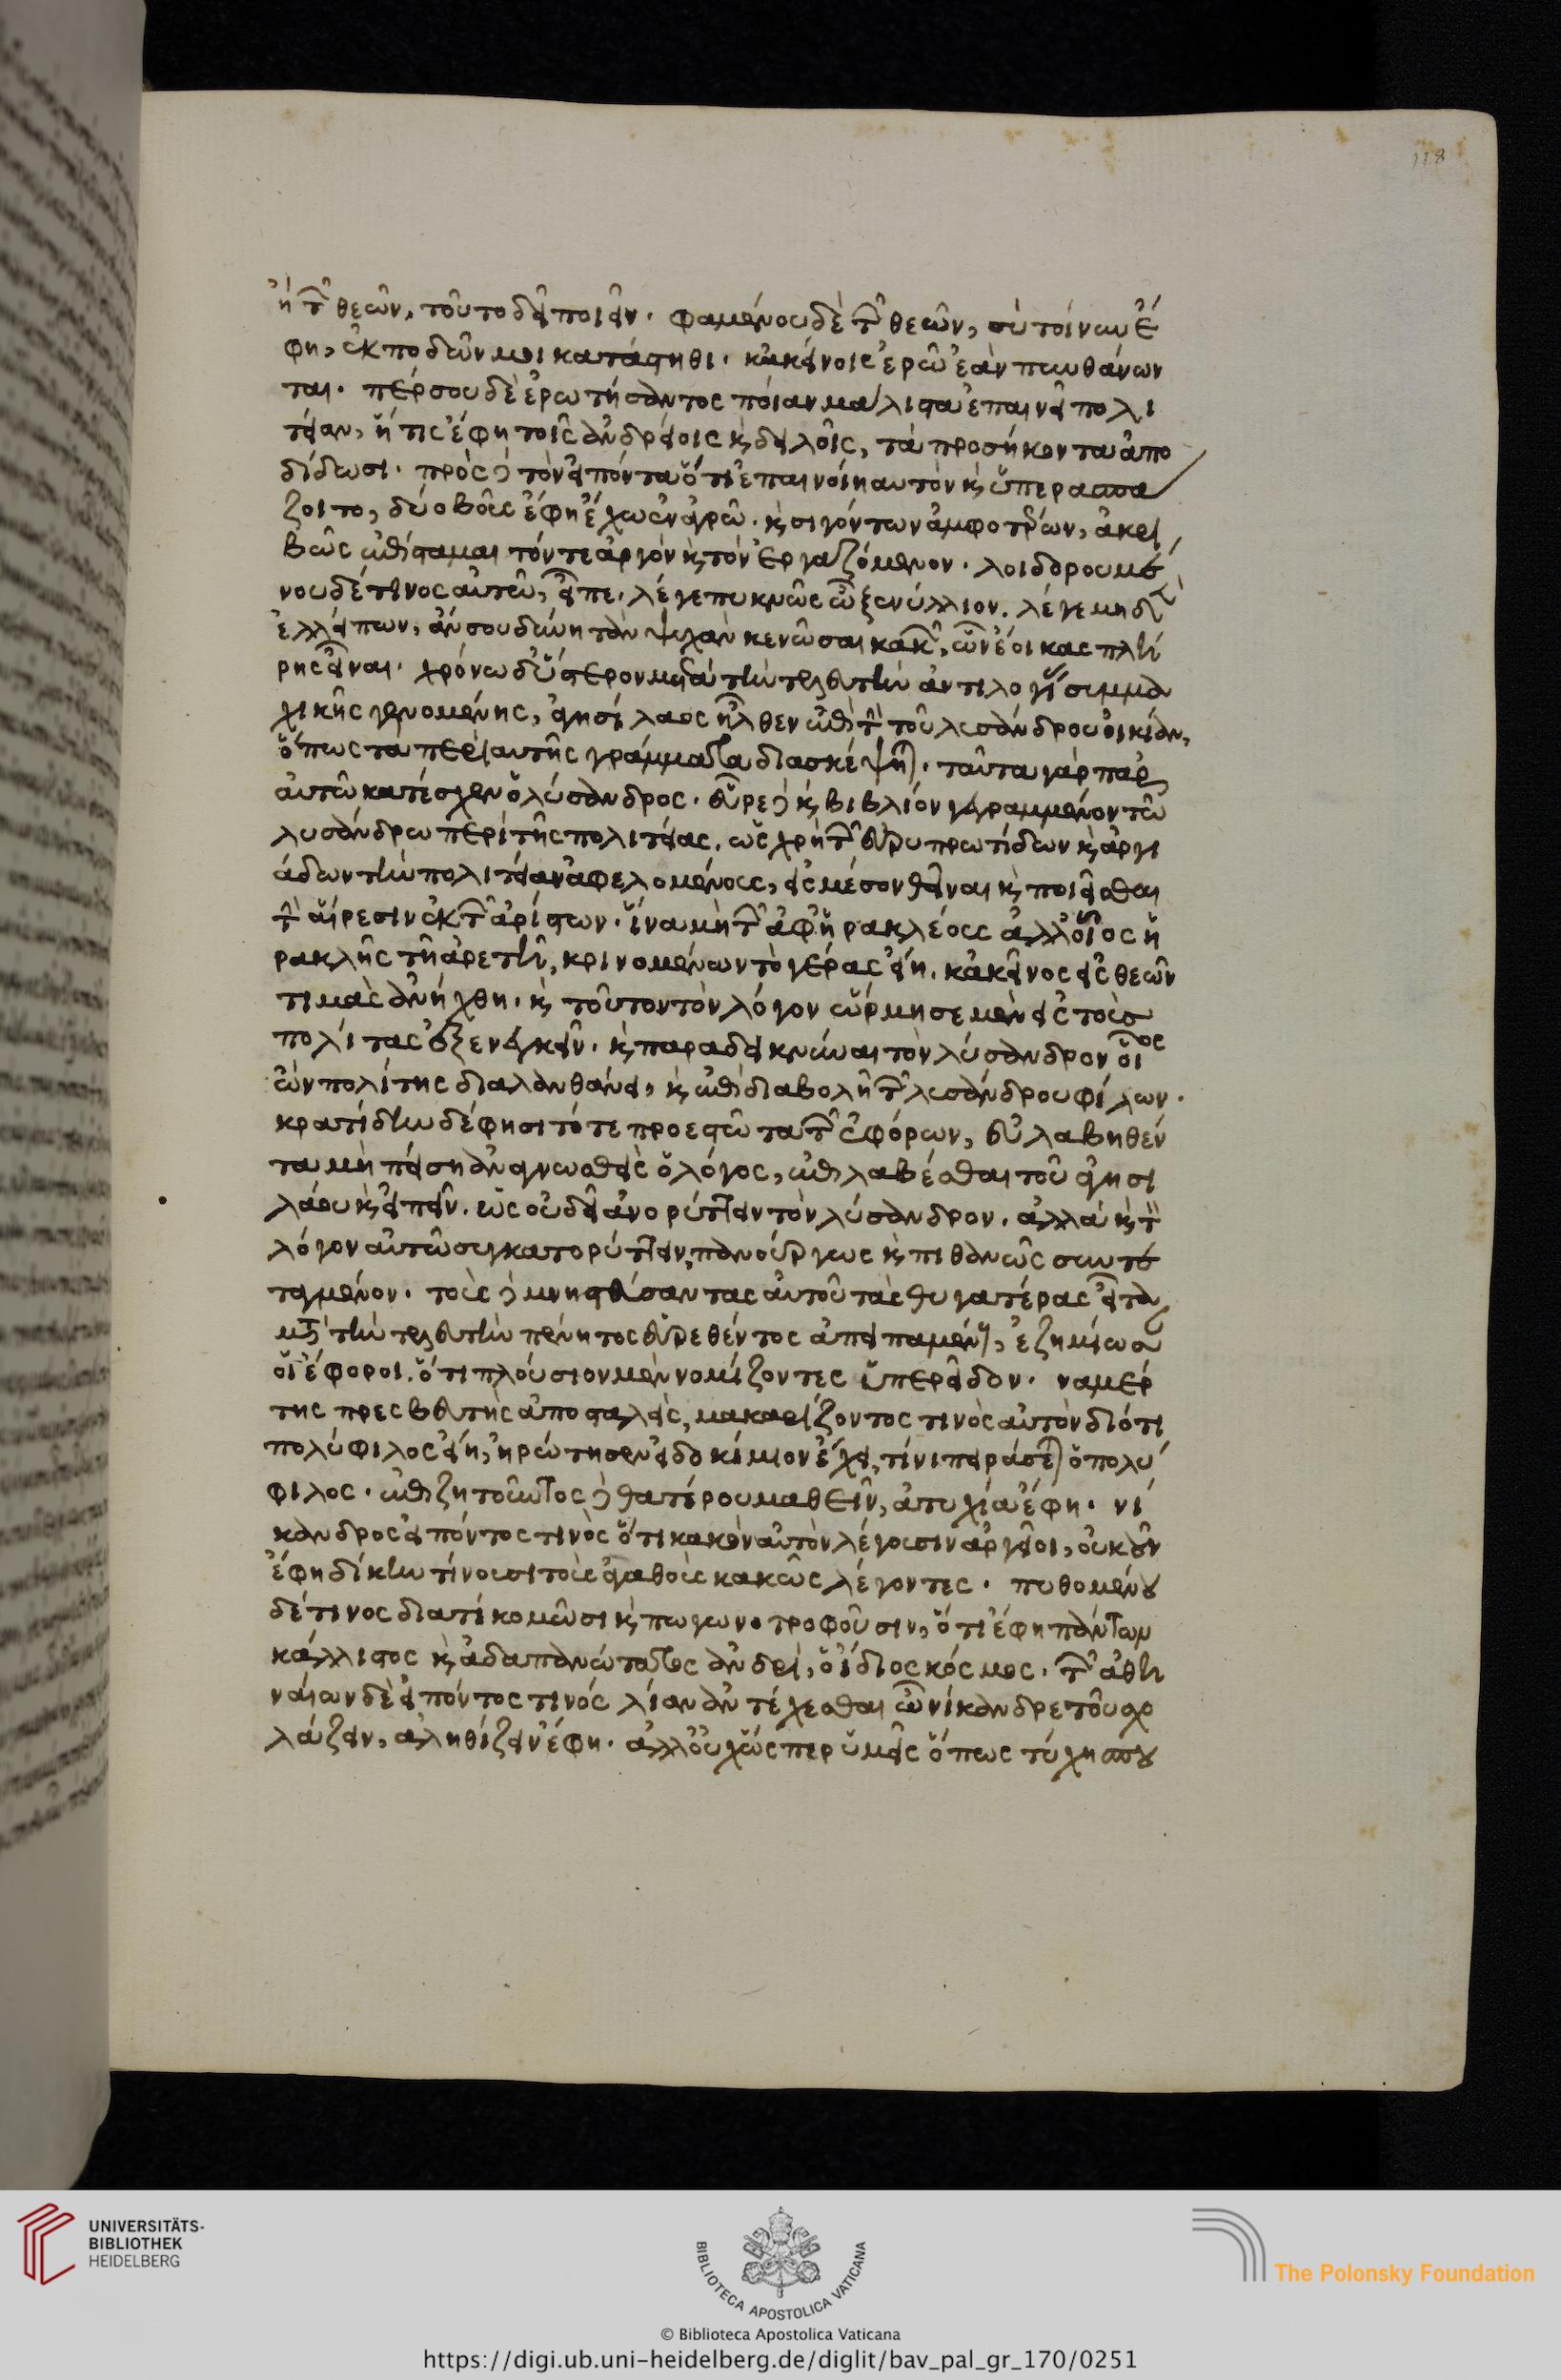 118
ἢ τῶν θεῶν, τοῦτο δεῖ ποιεῖν. φαμένου δὲ τῶν θεῶν, σὺ τοίνυν ἔ
φη, ἐκποδών μοι κατάστηθι. κἀκείνοις ἐρῶ ἐὰν πυνθάνων
ται. πέρσου δὲ ἐρωτήσαντος ποίαν μάλιστα ἐπαινεῖ πολι
τείαν, ἥτις ἔφη τοῖς ἀνδρείοις καὶ δειλοῖς, τὰ προσήκοντα ἀπο
δίδωσι. πρὸς δὲ τὸν εἰπόντα ὅτι ἐπαινοίη αυτὸν καὶ ὑπερασπα
ζοιτο, δύο βοῦς ἔφη ἔχω ἐν ἀγρῷ. καὶ σιγόντων ἀμφοτέρων, ἀκρι
βῶς ἐπίσταμαι τόν τε ἀργὸν καὶ τὸν ἐργαζόμενον. λοιδορουμέ
νου δέ τινος αὐτῷ, εἶπε. λέγε πυκνῶς ὦ ξενύλλιον. λέγε μηδὲν
ἐλλείπων, ἄν σου δύνη τὰν ψυχὰν κενῶσαι κακῶν, ὧν ἔοικας πλή
ρης εἶναι. χρόνω δ' ὕστερον μετὰ τὴν τελευτὴν ἀντιλογίας συμμα
χικῆς γενομένης, ἀγησίλαος ἦλθεν ἐπὶ τὴν τοῦ λυσάνδρου οἰκίαν,
ὅπως τὰ περὶ αυτῆς γράμματα διασκέψηται. ταῦτα γὰρ παρ'
αὑτῷ κατέσχεν ὁ λύσανδρος. εὗρε δὲ καὶ βιβλίον γεγραμμένον τῷ
λυσάνδρω περὶ τῆς πολιτείας. ὡς χρὴ τῶν εὐρυπρωτίδων καὶ ἀργι
άδων τὴν πολιτείαν ἀφελομένους, εἰς μέσον θεῖναι καὶ ποιεῖσθαι
τὴν αἵρεσιν ἐκ τῶν ἀρίστων. ἵνα μὴ τῶν ἀφ' ἡρακλέους ἀλλ' οἷος ἡ
ρακλῆς τῇ ἀρετῇ, κρινομένων τὸ γέρας εἴη. κἀκεῖνος εἰς θεῶν
τιμὰς ἀνήχθη. καὶ τοῦτον τὸν λόγον ὥρμησε μὲν εἰς τοὺς
πολίτας ἐξενεγκεῖν. καὶ παραδεικνύναι τὸν λύσανδρον οἷος
ὢν πολίτης διαλανθάνει, καὶ ἐπὶ διαβολῇ τῶν λυσάνδρου φίλων.
κρατίδην δέ φησι τότε προεστῶτα τῶν ἐφόρων, εὐλαβηθέν
τα μὴ πείση ἀναγνωσθεὶς ὁ λόγος, ἐπιλαβέσθαι τοῦ ἀγησι
λάου καὶ εἰπεῖν. ὡς οὐ δεῖ ἀνορύττειν τὸν λύσανδρον. ἀλλὰ καὶ τὸν
λόγον αὐτῷ συγκατορύττειν, πανούργως καὶ πιθανῶς συντε
ταγμένον. τοὺς δὲ μνηστεύσαντας αὐτοῦ τὰς θυγατέρας εἶτα
μετὰ τὴν τελευτὴν πένητος εὑρεθέντος ἀπειπαμένους, ἐζημίωσαν
οἱ ἔφοροι. ὅτι πλούσιον μὲν νομίζοντες ὑπερεῖδον. ναμέρ
της πρεσβευτὴς ἀποσταλεὶς, μακαρίζοντος τινὸς αὐτὸν διότι
πολύφιλος εἴη, ἠρώτησεν εἰ δοκίμιον ἔχει, τίνι πειράσεται ὁ πολύ
φιλος. ἐπιζητοῦντος δὲ θατέρου μαθεῖν, ἀτυχία ἔφη. νί
κανδρος εἰπόντος τινὸς ὅτι κακὸν αὐτὸν λέγουσιν ἀργεῖοι, οὐκοῦν
ἔφη δίκην τίνουσι τοὺς ἀγαθοὺς κακῶς λέγοντες. πυθομένου
δέ τινος διατί κομῶσι καὶ πωγωνοτροφοῦσιν, ὅτι ἔφη πάντων
κάλλιστος καὶ ἀδαπανώτατος ἀνδρὶ, ὁ ἴδιος κόσμος. τῶν ἀθη
ναίων δὲ εἰπόντος τινός λίαν ἀντέχεσθαι ὦ νίκανδρε τοῦ σχο
λάζειν, ἀληθίζειν ἔφη. ἀλλ' οὐχ ὥσπερ ὑμεῖς ὅπως τύχη σπου
UNIVERSITÄTS-
BIBLIOTHEK
HEIDELBERG
BIBLIOTECA APOSTOLICA VATICANA
The Polonsky Foundation
© Biblioteca Apostolica Vaticana
https://digi.ub.uni-heidelberg.de/diglit/bav_pal_gr_170/0251